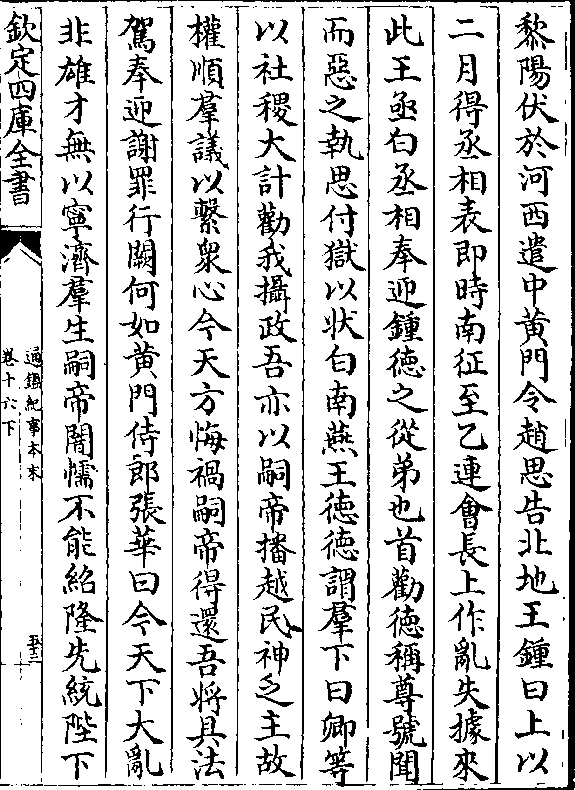 黎陽伏於河西遣中黃門令趙思告北地王鍾曰上以
二月得丞相表即時南征至乙連會長上作亂失據來
此王亟白丞相奉迎鍾德之從弟也首勸德稱尊號聞
而惡之執思付獄以狀白南燕王德德謂羣下曰卿等
以社稷大計勸我攝政吾亦以嗣帝播越民神乏主故
權順羣議以繫衆心今天方悔禍嗣帝得還吾將具法
駕奉迎謝罪行闕何如黃門侍郎張華曰今天下大亂
非雄才無以寧濟羣生嗣帝闇懦不能紹隆先統陛下
欽定四庫全書
通鑑紀事本末
卷十六下
五十三